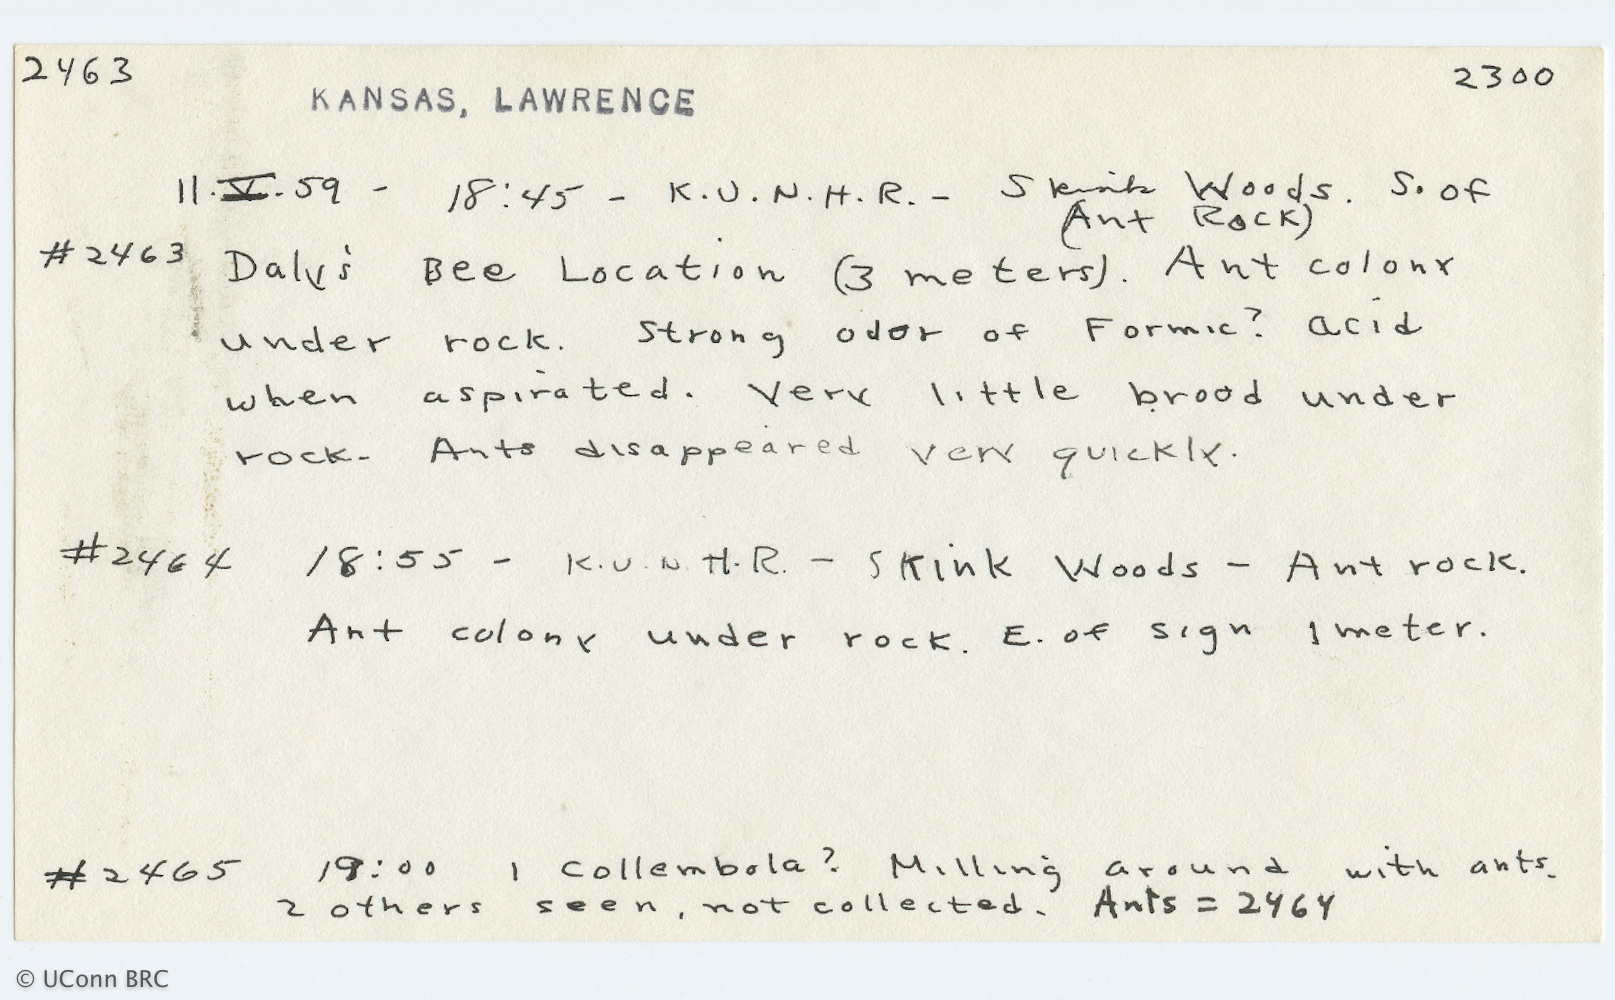 2463
2300
KANSAS, LAWRENCE
11.V.59 - 18:45 - K.U.N.H.R. - Skink Woods. S. of
(Ant Rock)
#2463 Daly's Bee Location (3 meters). Ant colony
under rock. Strong odor of Formic? acid
when aspirated. Very little brood under
rock. Ants disappeared very quickly.
#2464 18:55 - K.U.N.H.R. - Skink Woods - Ant rock.
Ant colony under rock. E. of sign 1 meter.
#2465 19:00 1 Collembola? Milling around with ants.
2 others seen, not collected. Ants = 2464
© UConn BRC